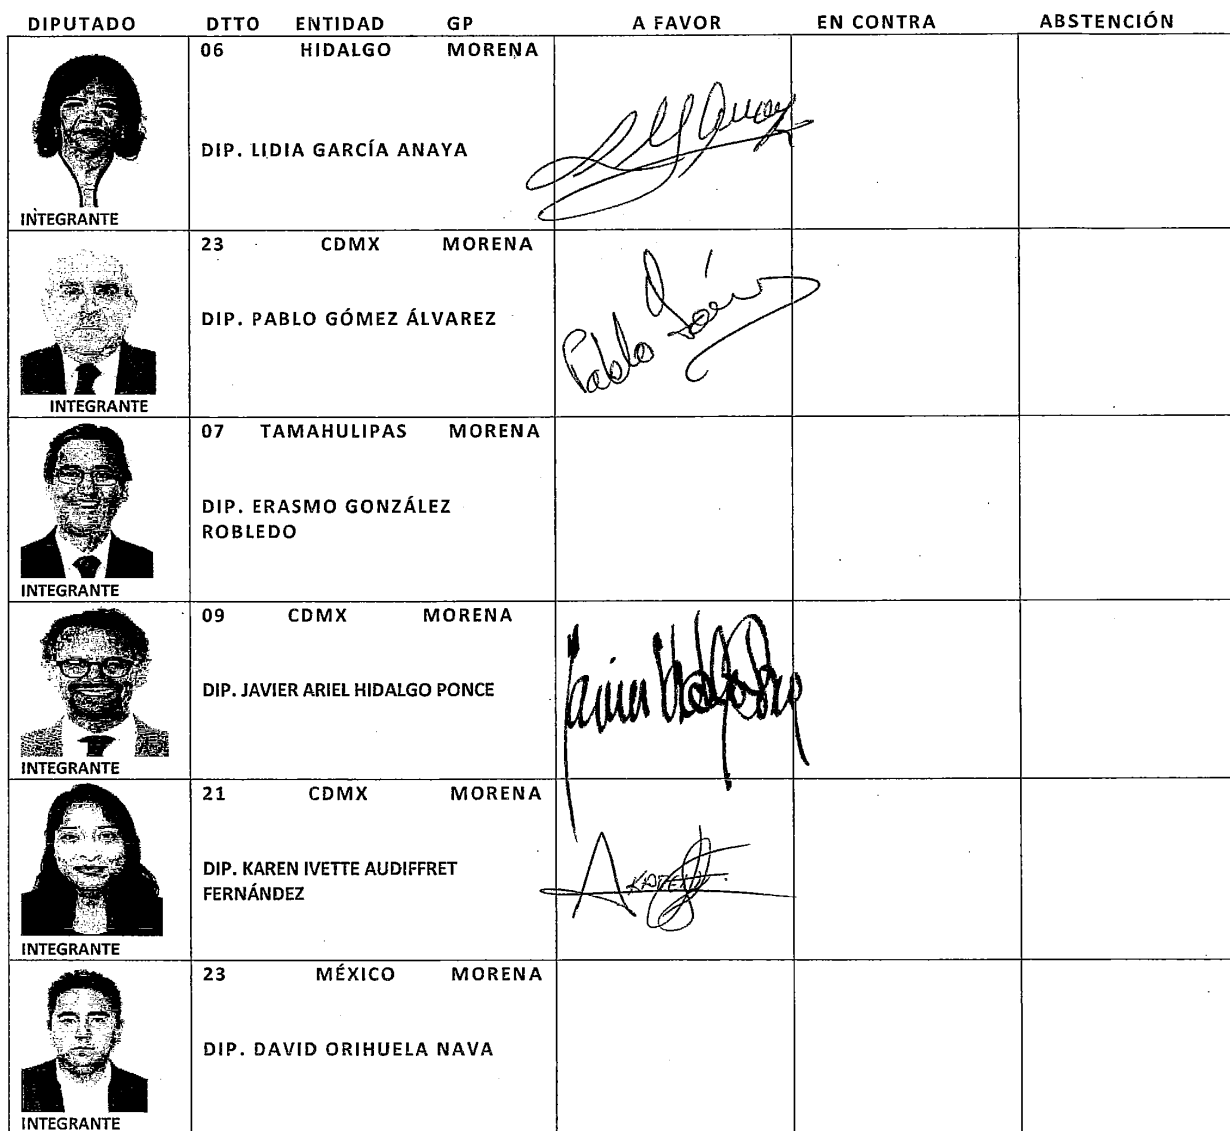 DIPUTADO DTTO ENTIDAD GP A FAVOR EN CONTRA ABSTENCIÓN
06 HIDALGO MORENA
DIP. LIDIA GARCÍA ANAYA
INTEGRANTE
23 CDMX MORENA
DIP. PABLO GÓMEZ ÁLVAREZ
Pablo
INTEGRANTE
07 TAMAHULIPAS MORENA
DIP. ERASMO GONZÁLEZ
ROBLEDO
INTEGRANTE
09 CDMX MORENA
DIP. JAVIER ARIEL HIDALGO PONCE
Javier Hidalgo
INTEGRANTE
21 CDMX MORENA
DIP. KAREN IVETTE AUDIFFRET
FERNÁNDEZ
KAREN
INTEGRANTE
23 MÉXICO MORENA
DIP. DAVID ORIHUELA NAVA
INTEGRANTE